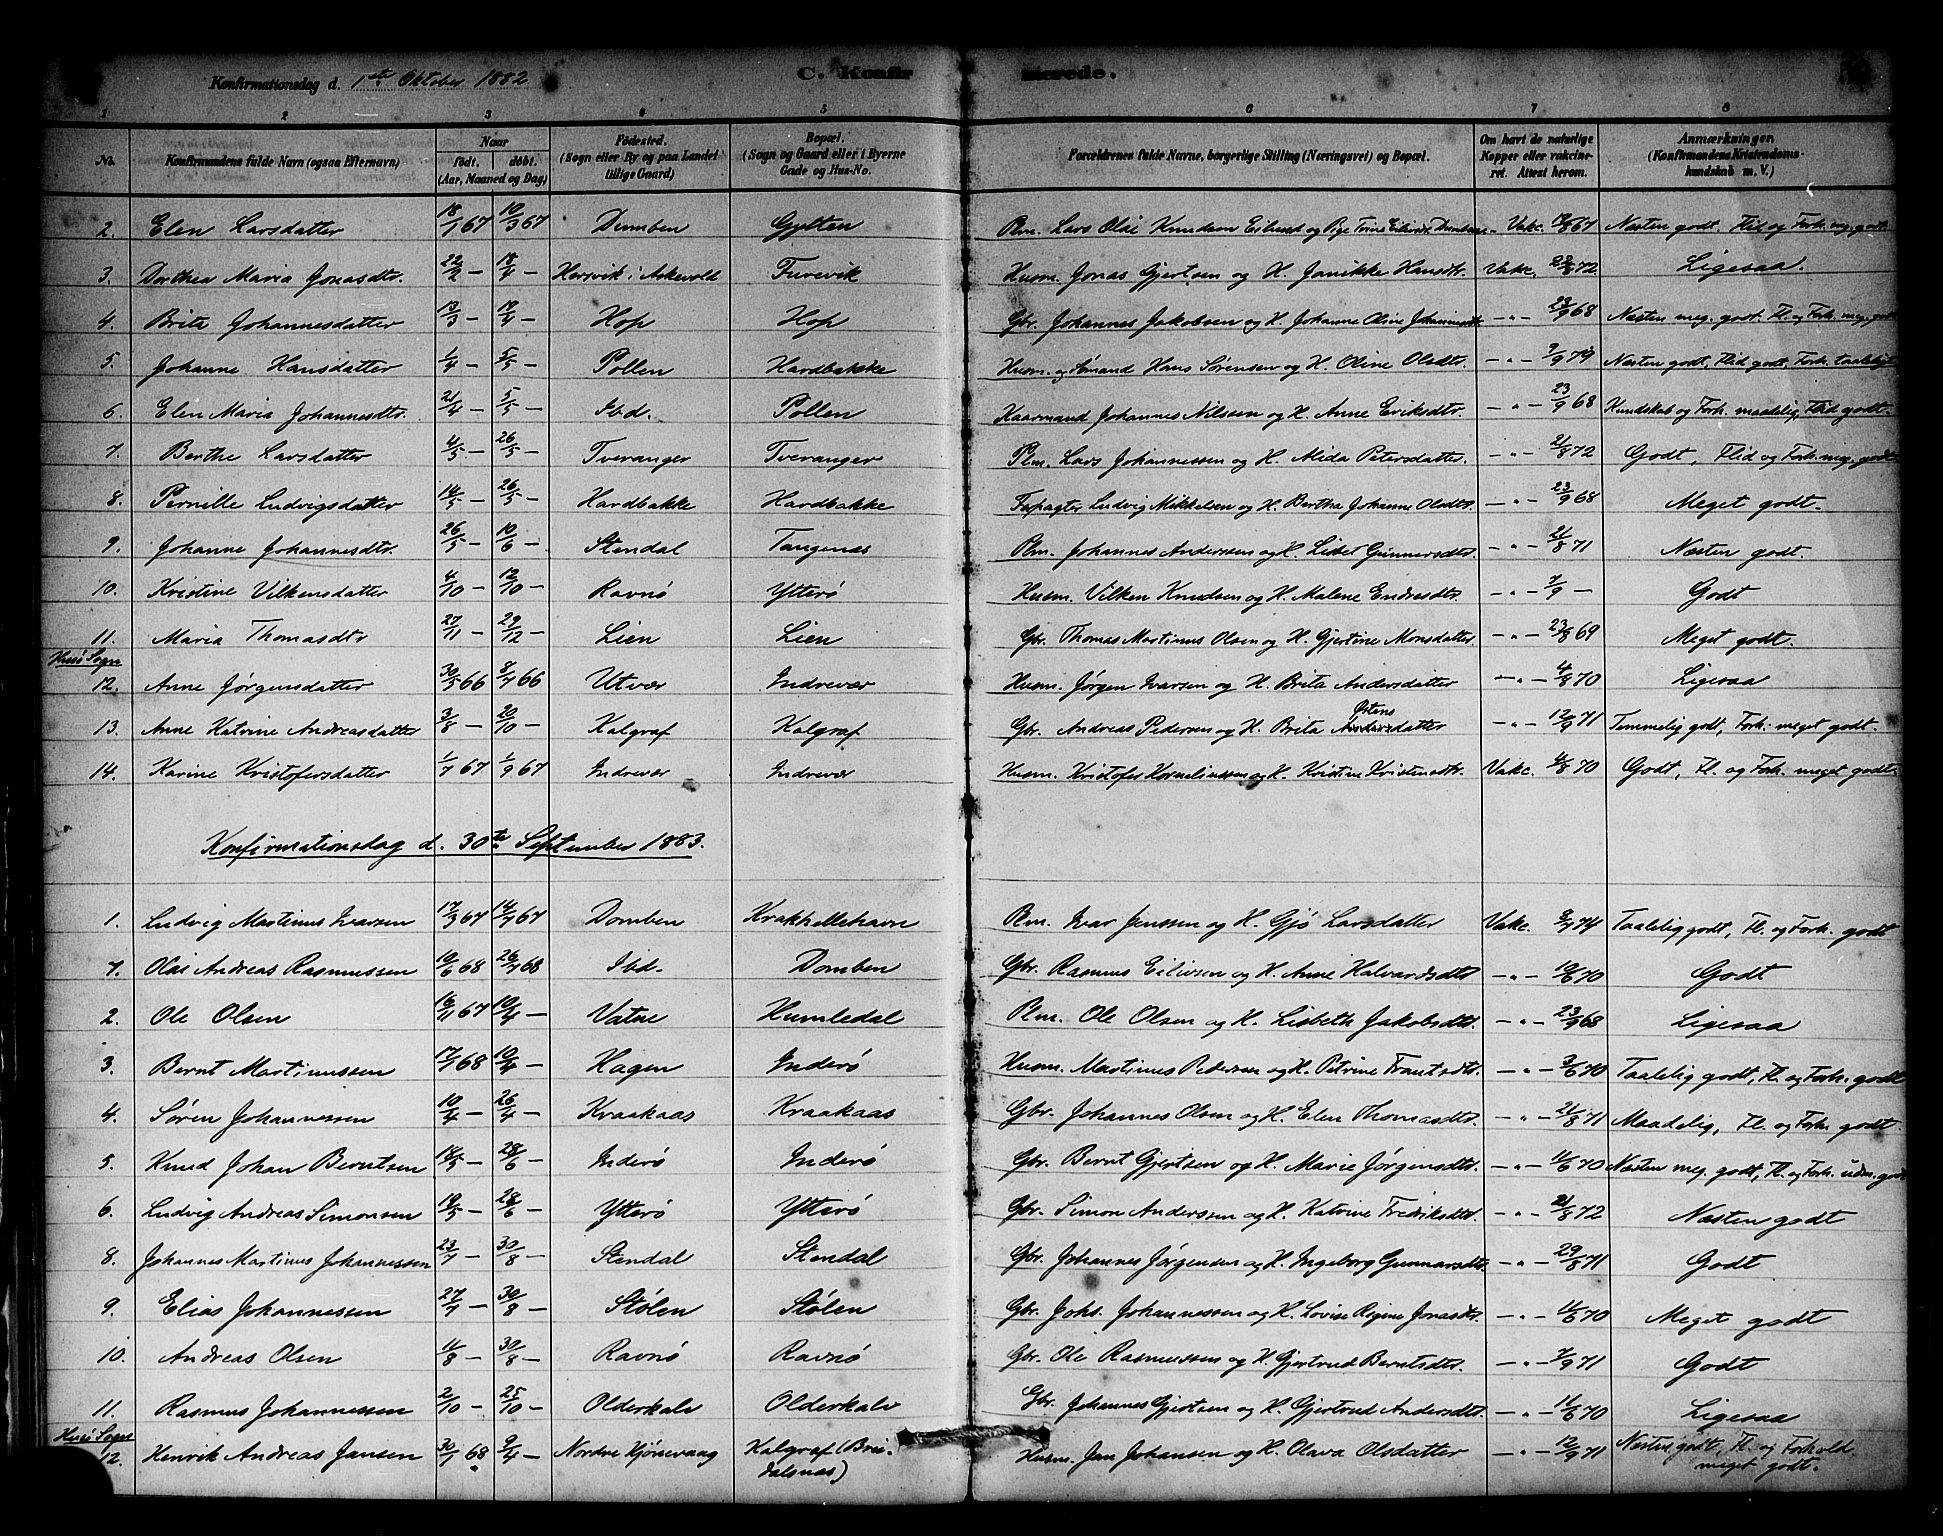 Konfirmationsdag d. 1ste Oktober 1882 C. Konfirmerede.
1 2 3 4 5 6 7 8
No. Konfirmandens fulde Navn (ogsaa Efternavn) Naar født. døbt. (Aar, Maaned og Dag) Fødested. (Sogn eller By og paa Landet tillige Gaard) Bopæl. (Sogn og Gaard eller i Byerne Gade og Hus-No. Forældrenes fulde Navne, borgerlige Stilling (Næringsvei) og Bopæl. Om havt de naturlige Kopper eller vakcineret. Attest herom. Anmærkninger. (Konfirmandens Kristendomskundskab m. V.)
2. Elen Larsdatter 18/1 67 10/3 67 Domben Gylten Plm. Lars Olai Knudsen Eilund og Pige Trine Eilivsdt. Domben Vakc. 67 Næsten godt, Flid og Forh. meg. godt.
3. Dorthea Maria Jonasdtr. 22/2 — 18/4 — Hersvik i Askevold Furevik Husm. Jonas Gjertsen og H. Janikke Hansdtr. Vakc. 22/8 72 Ligesaa.
4. Brita Johannesdatter 13/3 — 19/4 — Hop Hop Gbr. Johannes Jakobsen og H. Johanne Oline Johannesdtr. — " — 23/9 68 Næsten meg. godt. Fl. og Forh. meg. godt
5. Johanne Hansdatter 1/4 — 5/5 — Pollen Hardbakke Husm. og Sømand Hans Sørensen og H. Oline Olsdtr. — " — 9/9 79 Næsten godt, Flid godt, Forh. taaleligt
6. Elen Maria Johannesdtr. 21/4 — 5/5 — Ibd. Pollen Kaarmand Johannes Nilssen og H. Anne Eriksdtr. — " — 23/9 68 Kundskab og Forh. maadelig, Flid godt.
7. Berthe Larsdatter 4/5 — 26/5 — Tveranger Tveranger Plm. Lars Johannessen og H. Alida Petersdatter. — " — 21/8 72 Godt, Flid og Forh. meg. godt
8. Pernille Ludvigsdatter 14/5 — 26/5 — Hardbakke Hardbakke Forpagter Ludvig Mikkelsen og H. Bertha Johanne Olsdtr. — " — 23/9 68 Meget godt.
9. Johanne Johannesdtr. 26/5 — 10/6 — Stendal Tangenæs Plm. Johannes Anderssen og H. Lisbet Gunnarsdtr. — " — 21/8 71 Næsten godt.
10. Kristine Vilkensdatter 4/10 — 12/10 — Ravnø Ytterø Husm. Vilken Knudsen og H. Malene Endresdtr. — " — 7/9 — Godt
11. Maria Thomasdtr 27/11 — 29/12 — Lien Lien Gbr. Thomas Martinus Olsen og H. Gjertine Monsdatter — " — 23/8 69 Meget godt.
Husø Sogn
12. Anne Jørgensdatter 30/5 66 8/7 66 Utvær Indrevær Husm. Jørgen Ivarsen og H. Brita Andersdatter — " — 4/8 70 Ligesaa
13. Anne Katrine Andreasdatter 3/8 — 20/10 — Kalgraf Kalgraf Gbr. Andreas Pedersen og H. Brita Østensdatter — " — 12/9 71 Temmelig godt, Forh. meget godt.
14. Karine Kristofersdatter 1/7 67 1/9 67 Indrevær Indrevær Husm. Kristofer Korneliussen og H. Kristine Kristensdtr. Vakc. 4/8 70 Godt, Fl. og Forh. meget godt.
Konfirmationsdag d. 30te September 1883.
1. Ludvig Martinus Ivarsen 17/3 67 14/7 67 Domben Krakhellehavn Plm. Ivar Jenssen og H. Gjø Larsdatter Vakc. 9/7 74 Taalelig godt, Fl. og Forh. godt
7. Olai Andreas Rasmussen 10/6 68 26/7 68 Ibd. Domben Gbr. Rasmus Eilivsen og H. Anne Halvardsdtr — " — 10/6 70 Godt
2. Ole Olsen 16/11 67 10/4 — Vatne Humledal Plm. Ole Olsen og H. Lisbeth Jakobsdtr. — " — 23/9 68 Ligesaa
3. Bernt Martinussen 17/1 68 10/4 — Hagen Inderø Husm. Martinus Pedersen og H. Petrine Frantsdtr. — " — 3/6 70 Taalelig godt, Fl. og Forh. godt
4. Søren Johannessen 10/4 — 26/4 — Kraakaas Kraakaas Gbr. Johannes Olsen og H. Elen Thomasdtr. — " — 21/8 71 Maadelig, Fl. og Forh. godt.
5. Knud Johan Berntsen 18/5 — 28/6 — Inderø Inderø Gbr. Bernt Gjertsen og H. Marie Jørgensdtr. — " — 11/6 70 Næsten meg. godt, Fl. og Forh. udm. godt
6. Ludvig Andreas Simonsen 19/5 — 28/6 — Ytterø Ytterø Gbr. Simon Anderssen og H. Katrine Fredriksdtr. — " — 21/8 72 Næsten godt
8. Johannes Martinus Johannessen 23/7 — 30/8 — Stendal Stendal Gbr. Johannes Jørgensen og H. Ingeborg Gunnarsdtr. — " — 29/8 71 Godt
9. Elias Johannessen 27/7 — 30/8 — Stølen Stølen Gbr. Johs. Johannessen og H. Lovise Regine Jonasdtr. — " — 11/6 70 Meget godt
10. Andreas Olsen 11/8 — 30/8 — Ravnø Ravnø Gbr. Ole Rasmussen og H. Gjertrud Berntsdtr. — " — 7/9 71 Godt
11. Rasmus Johannessen 2/10 — 25/10 — Olderkalv Olderkalv Gbr. Johannes Gjertsen og H. Gjertrud Andersdtr. — " — 11/6 70 Ligesaa
Husø Sogn
12. Henrik Andreas Jansen 30/1 68 9/4 — Nordre Hjønevaag Kalgraf (Breidalsnæs) Husm. Jan Johansen og H. Olava Olsdatter — " — 12/9 71 Næsten godt, Fl. og Forhold meget godt.